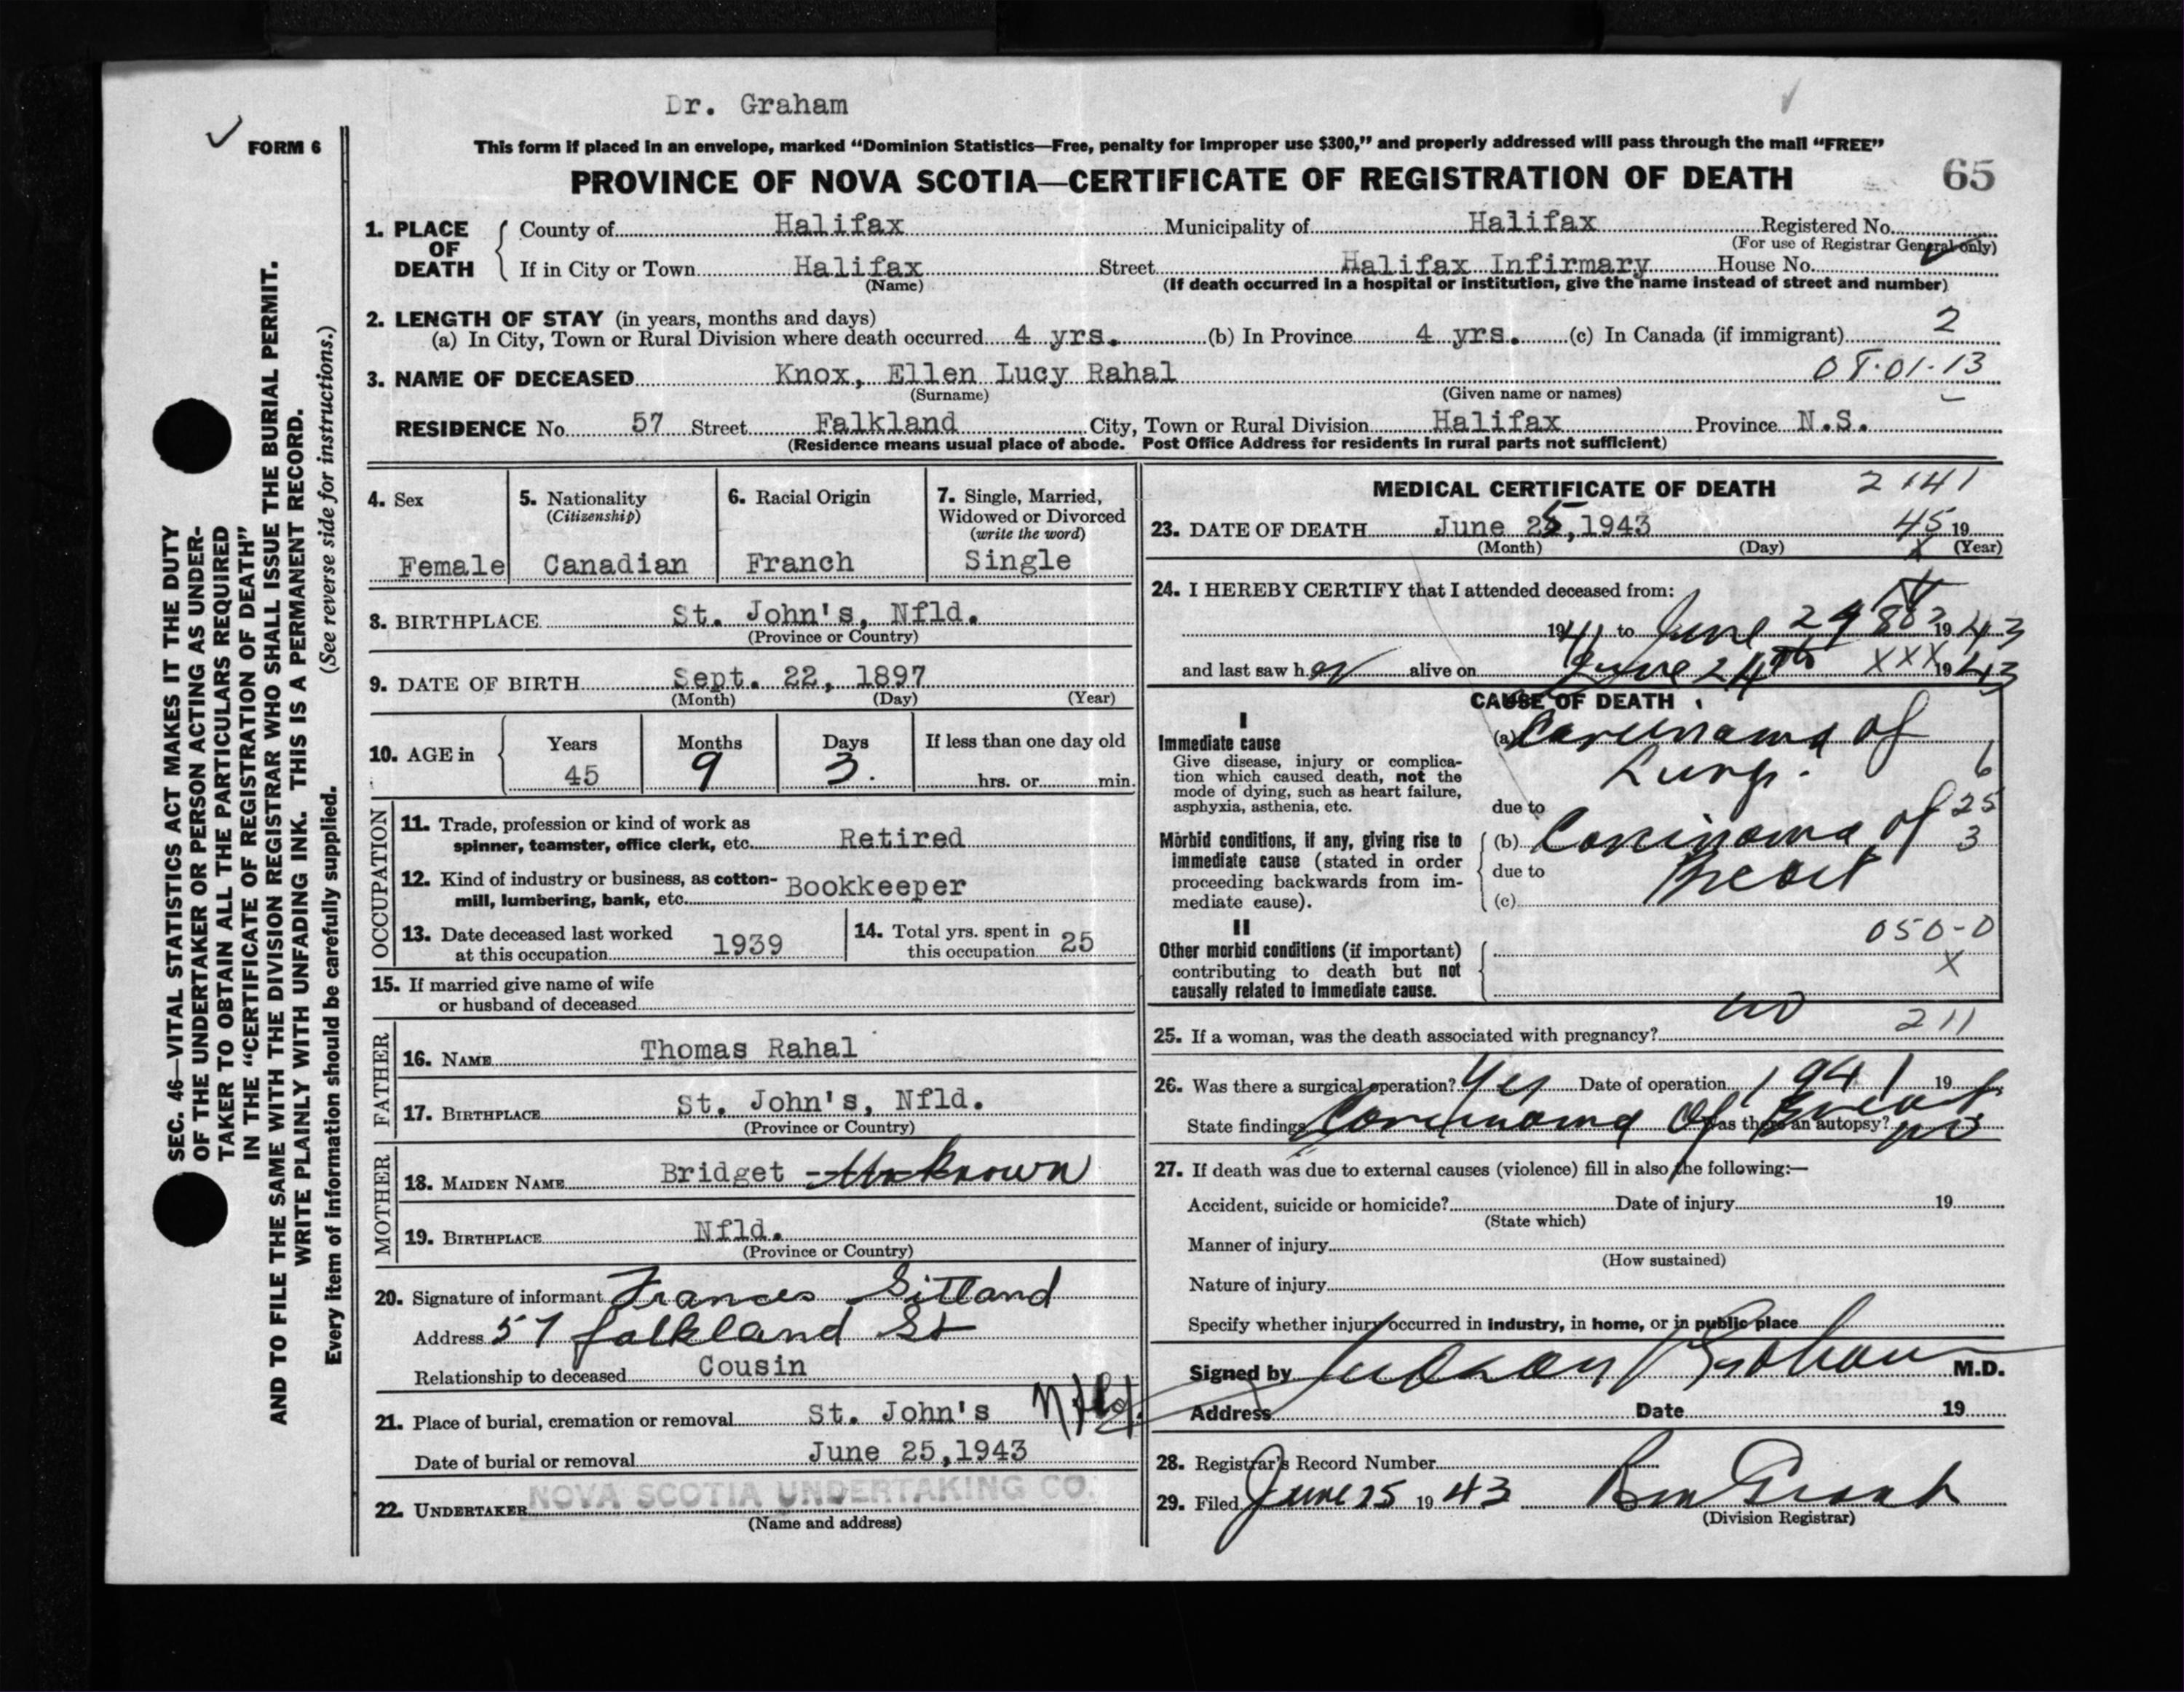 Dr. Graham
FORM 6
This form if placed in an envelope, marked "Dominion Statistics—Free, penalty for improper use $300," and properly addressed will pass through the mail "FREE"
PROVINCE OF NOVA SCOTIA—CERTIFICATE OF REGISTRATION OF DEATH
65
1. PLACE OF DEATH
County of Halifax Municipality of Halifax Registered No.
(For use of Registrar General only)
If in City or Town Halifax Street Halifax Infirmary House No.
(Name) (If death occurred in a hospital or institution, give the name instead of street and number)
2. LENGTH OF STAY (in years, months and days)
(a) In City, Town or Rural Division where death occurred 4 yrs. (b) In Province 4 yrs. (c) In Canada (if immigrant) 2
3. NAME OF DECEASED Knox, Ellen Lucy Rahal 08.01.13
(Surname) (Given name or names)
RESIDENCE No. 57 Street Falkland City, Town or Rural Division Halifax Province N.S.
(Residence means usual place of abode. Post Office Address for residents in rural parts not sufficient)
4. Sex
Female
5. Nationality
(Citizenship)
Canadian
6. Racial Origin
Franch
7. Single, Married,
Widowed or Divorced
(write the word)
Single
8. BIRTHPLACE St. John's, Nfld.
(Province or Country)
9. DATE OF BIRTH Sept. 22, 1897
(Month) (Day) (Year)
10. AGE in
Years Months Days If less than one day old
45 9 3. hrs. or min.
OCCUPATION
11. Trade, profession or kind of work as
spinner, teamster, office clerk, etc. Retired
12. Kind of industry or business, as cotton-
mill, lumbering, bank, etc. Bookkeeper
13. Date deceased last worked
at this occupation 1939
14. Total yrs. spent in
this occupation 25
15. If married give name of wife
or husband of deceased
FATHER
16. NAME Thomas Rahal
17. BIRTHPLACE St. John's, Nfld.
(Province or Country)
MOTHER
18. MAIDEN NAME Bridget Unknown
19. BIRTHPLACE Nfld.
(Province or Country)
20. Signature of informant Frances
Address 57 Falkland St
Relationship to deceased Cousin
21. Place of burial, cremation or removal St. John's Nfld.
Date of burial or removal June 25,1943
22. UNDERTAKER NOVA SCOTIA UNDERTAKING CO.
(Name and address)
MEDICAL CERTIFICATE OF DEATH 2141
23. DATE OF DEATH June 25,1943 45 19
(Month) (Day) X (Year)
24. I HEREBY CERTIFY that I attended deceased from:
1941 to June 24 1943
and last saw her alive on June 24th XXX 1943
CAUSE OF DEATH
I
Immediate cause
Give disease, injury or complica-
tion which caused death, not the
mode of dying, such as heart failure,
asphyxia, asthenia, etc.
(a) Carcinoma of
Lung.
6
due to
Morbid conditions, if any, giving rise to
immediate cause (stated in order
proceeding backwards from im-
mediate cause).
(b) Carcinoma of
25
3
due to Breast
(c)
II
Other morbid conditions (if important)
contributing to death but not
causally related to immediate cause.
050-0
X
25. If a woman, was the death associated with pregnancy? no 211
26. Was there a surgical operation? Yes Date of operation 1941 19
State findings Carcinoma of Breast Was there an autopsy? no
27. If death was due to external causes (violence) fill in also the following:—
Accident, suicide or homicide? Date of injury 19
(State which)
Manner of injury
(How sustained)
Nature of injury
Specify whether injury occurred in industry, in home, or in public place
Signed by Judson Graham M.D.
Address Date 19
28. Registrar's Record Number
29. Filed June 25 1943
(Division Registrar)
SEC. 46—VITAL STATISTICS ACT MAKES IT THE DUTY
OF THE UNDERTAKER OR PERSON ACTING AS UNDER-
TAKER TO OBTAIN ALL THE PARTICULARS REQUIRED
IN THE "CERTIFICATE OF REGISTRATION OF DEATH"
AND TO FILE THE SAME WITH THE DIVISION REGISTRAR WHO SHALL ISSUE THE BURIAL PERMIT.
WRITE PLAINLY WITH UNFADING INK. THIS IS A PERMANENT RECORD.
Every item of information should be carefully supplied. (See reverse side for instructions.)